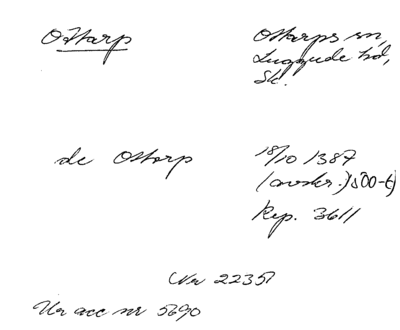 Ottarp
Ottarps sn,
Luggude hd,
Sk.
de Ottorp
18/10 1387
(avskr.) 1500-t)
Rep. 3611
Nr 2235
Ur acc nr 5690